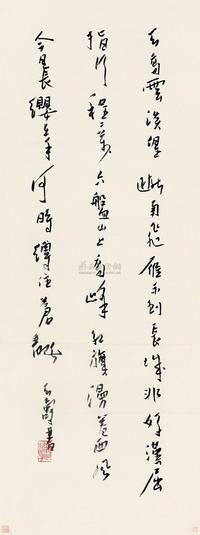 天高雲淡望斷南飛雁不到長城非好漢屈
指行程二萬六盤山上高峰紅旗漫卷西風
今日長纓在手何時縛住蒼龍
天壽書